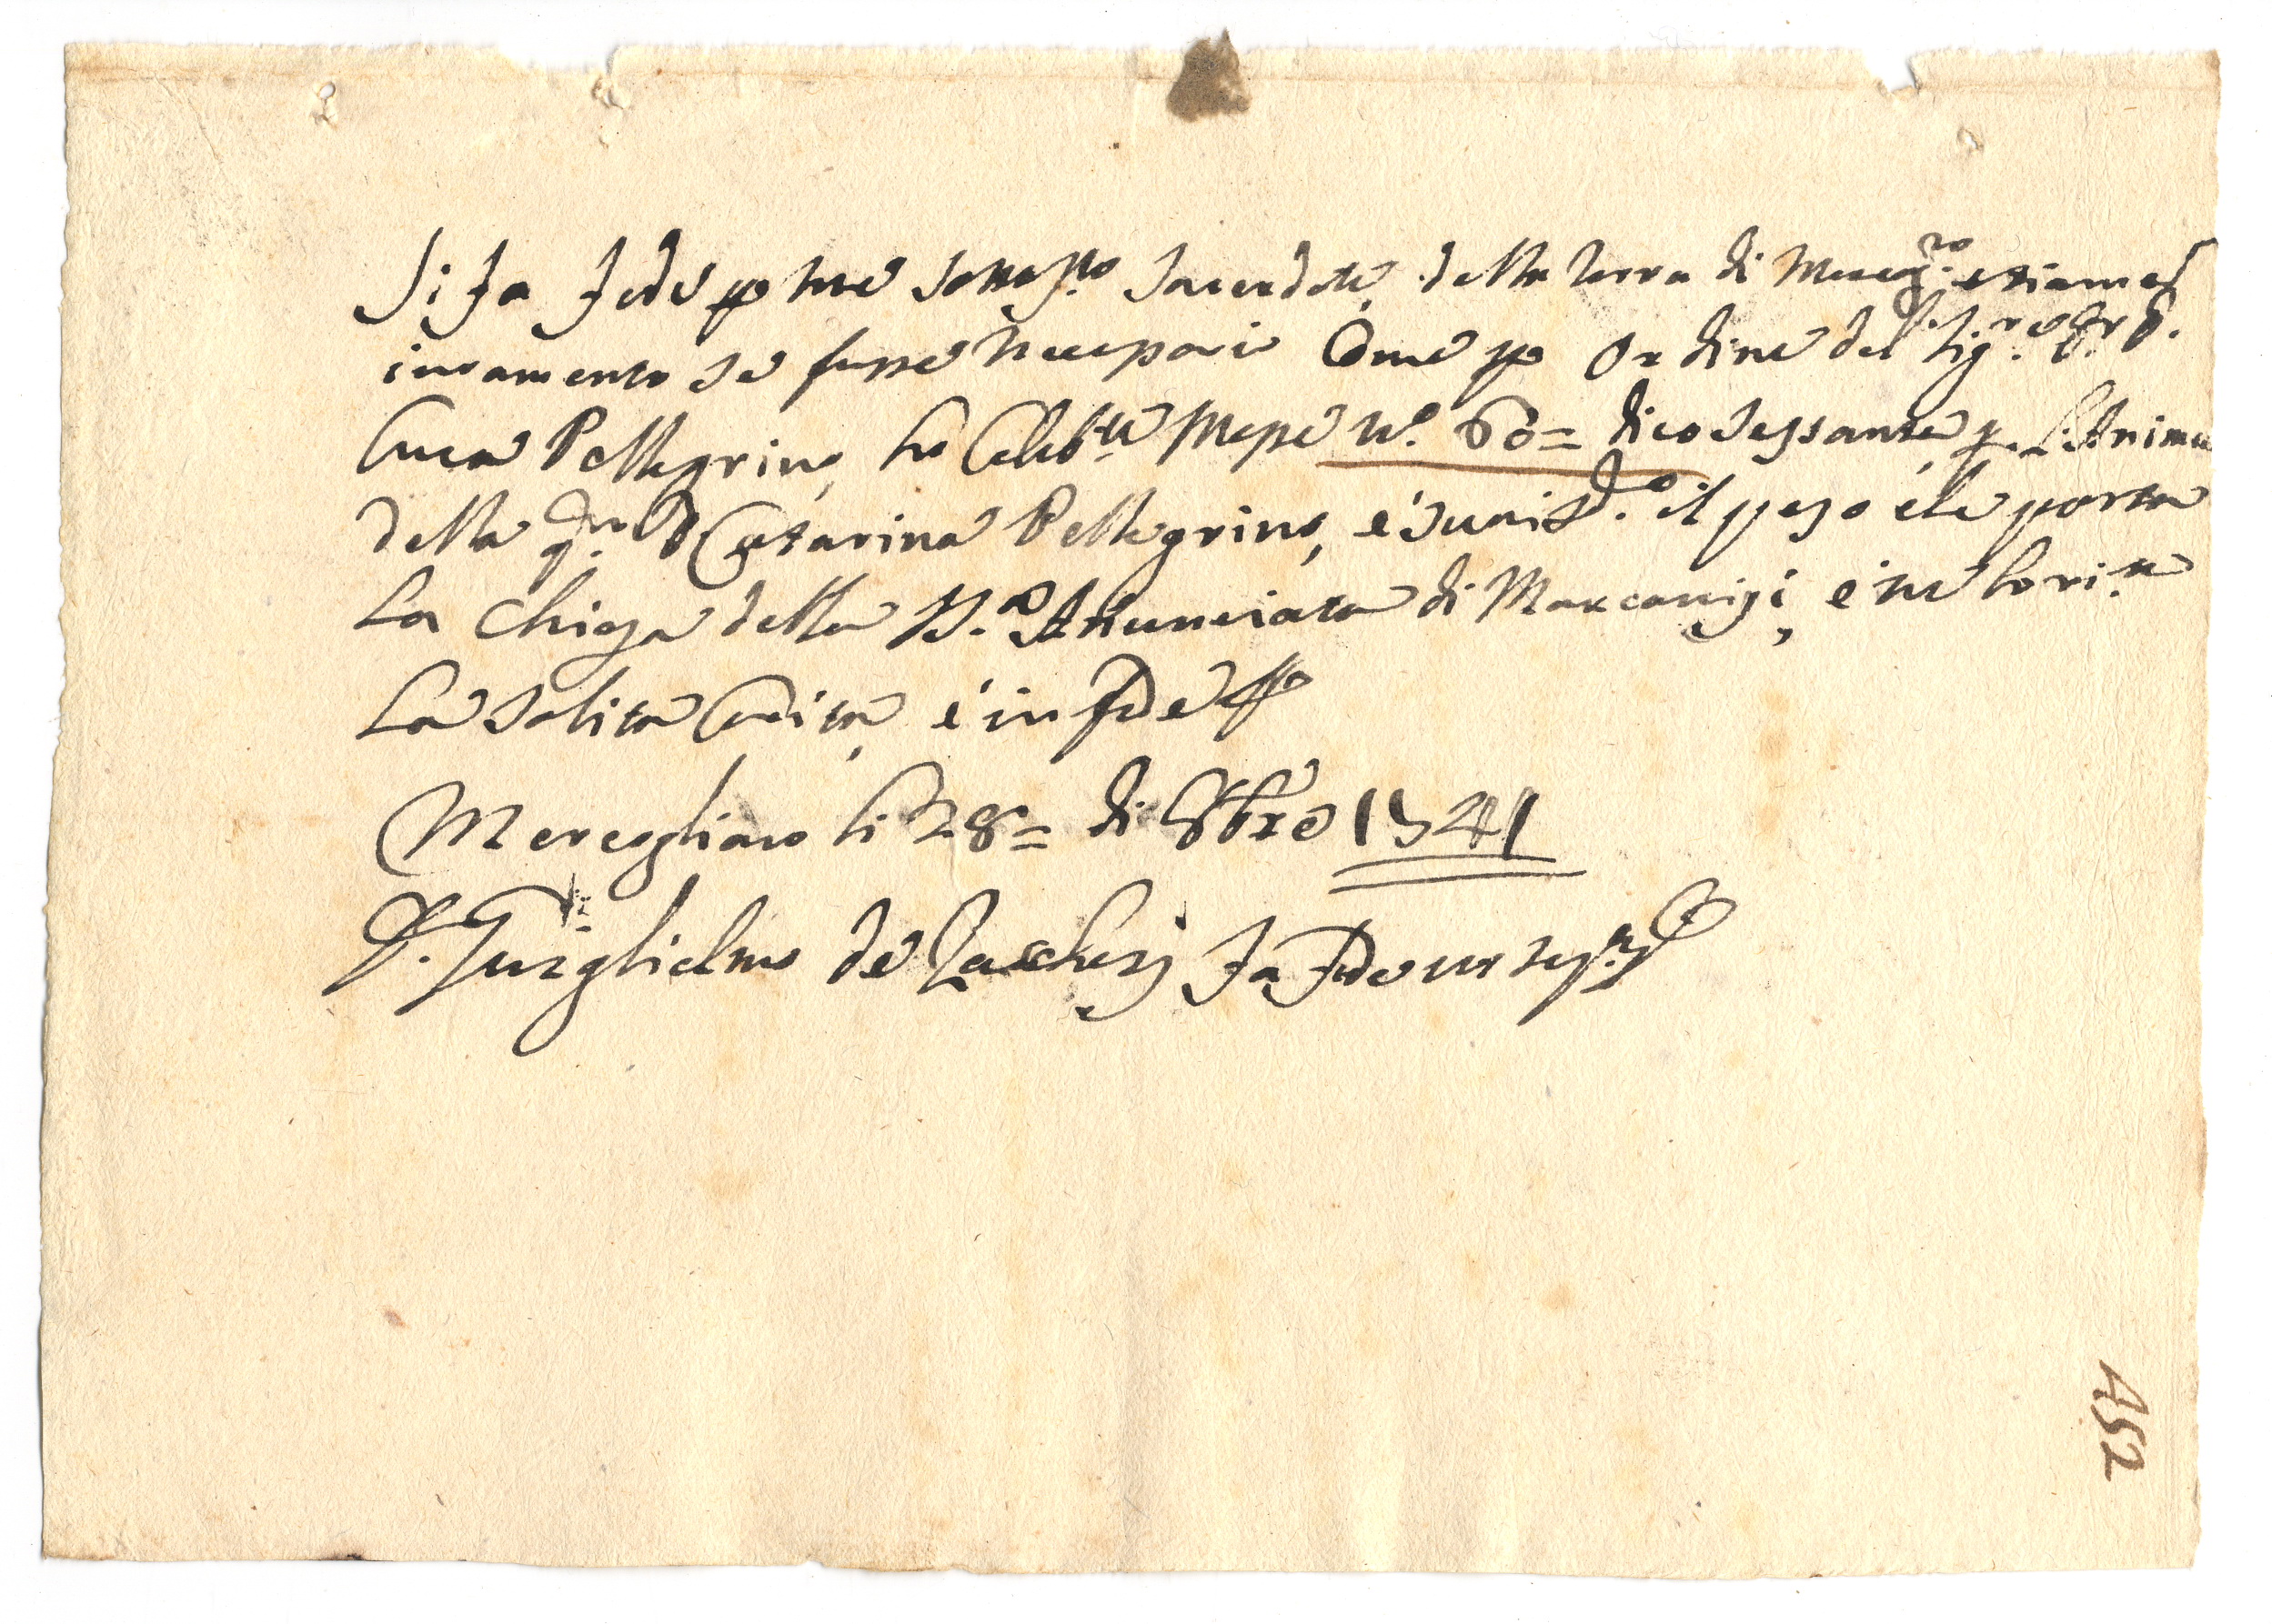 Si fa fede per me sottos.tto Sacerdote della terra di Mercog.no etiam cũ
iuramento se fusse necessario Come per Ordine del Sig.re D.r D.
Luca Pellegrino, hò Celeb.te Messe n.o 60= dico sessanta, p. l'Anima
della q.m D Catarina Pellegrino, é sunt.o il peso che porta
la Chiesa della SS.a Annunciata di Marcanisi, e ne
La solita Carità, é in fede
Mercogliano li 28= di 8bre 1741
D. Guiglielmo de fa fede ut sup.a
A52